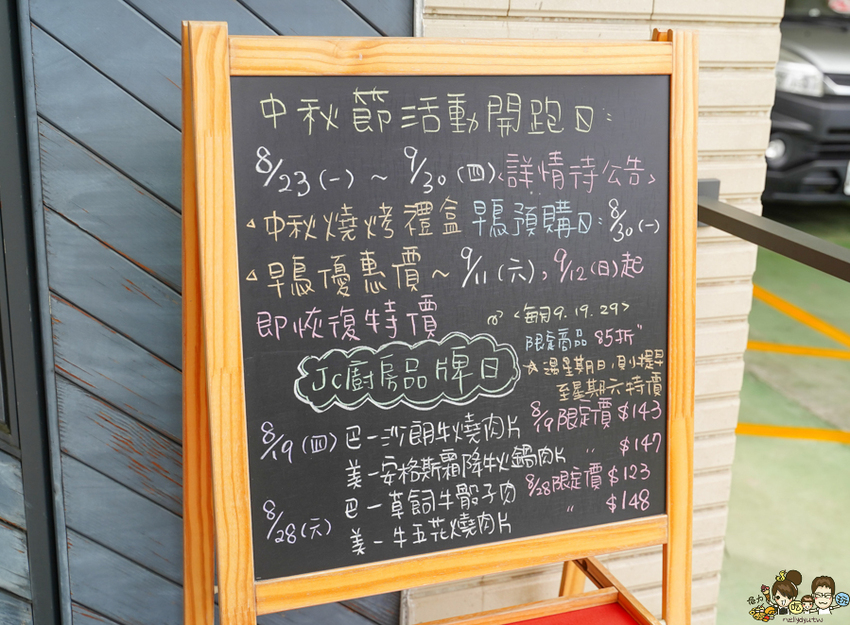 中秋節活動開跑日:
8/23(一) ~ 9/30(四)<詳情待公告>
△中秋燒烤禮盒 早鳥預購日:8/30(一)
△早鳥優惠價~9/11(六),9/12(日)起
即恢復特價
<每月9.19.29>
限定商品 85折"
☆遇星期日,則提早
至星期六特價
JC廚房品牌日
8/19(四) 巴-沙朗牛燒肉片 8/19限定價$143
美-安格斯霜降牛火鍋肉片 " $147
8/28(六) 巴-草飼牛骰子肉 8/28限定價$123
美-牛五花燒肉片 " $148
nellydyu.tw